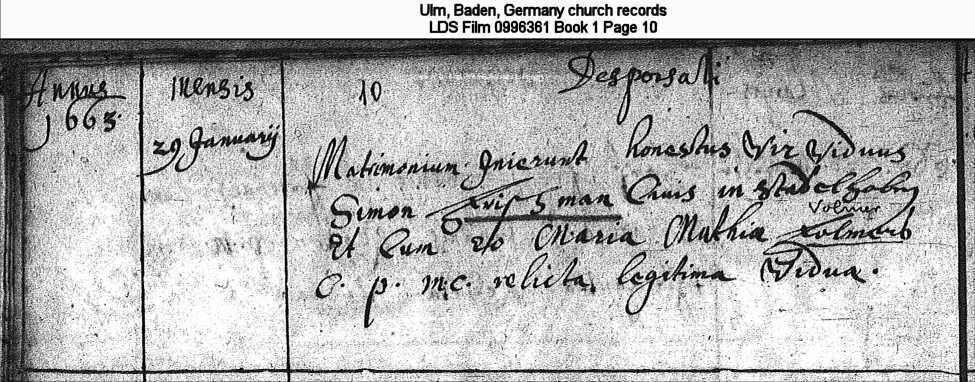 Ulm, Baden, Germany church records
LDS Film 0996361 Book 1 Page 10
Annus mensis 10 Desponsati
1665.
29 Januarij
Matrimonium Inierunt honestus Vir Viduus
Simon Frischman Civis in Stadelhoven
Volmer
Et Cum eo Maria Mathiæ Folmers
C. p. m.c. relicta legitima Vidua.